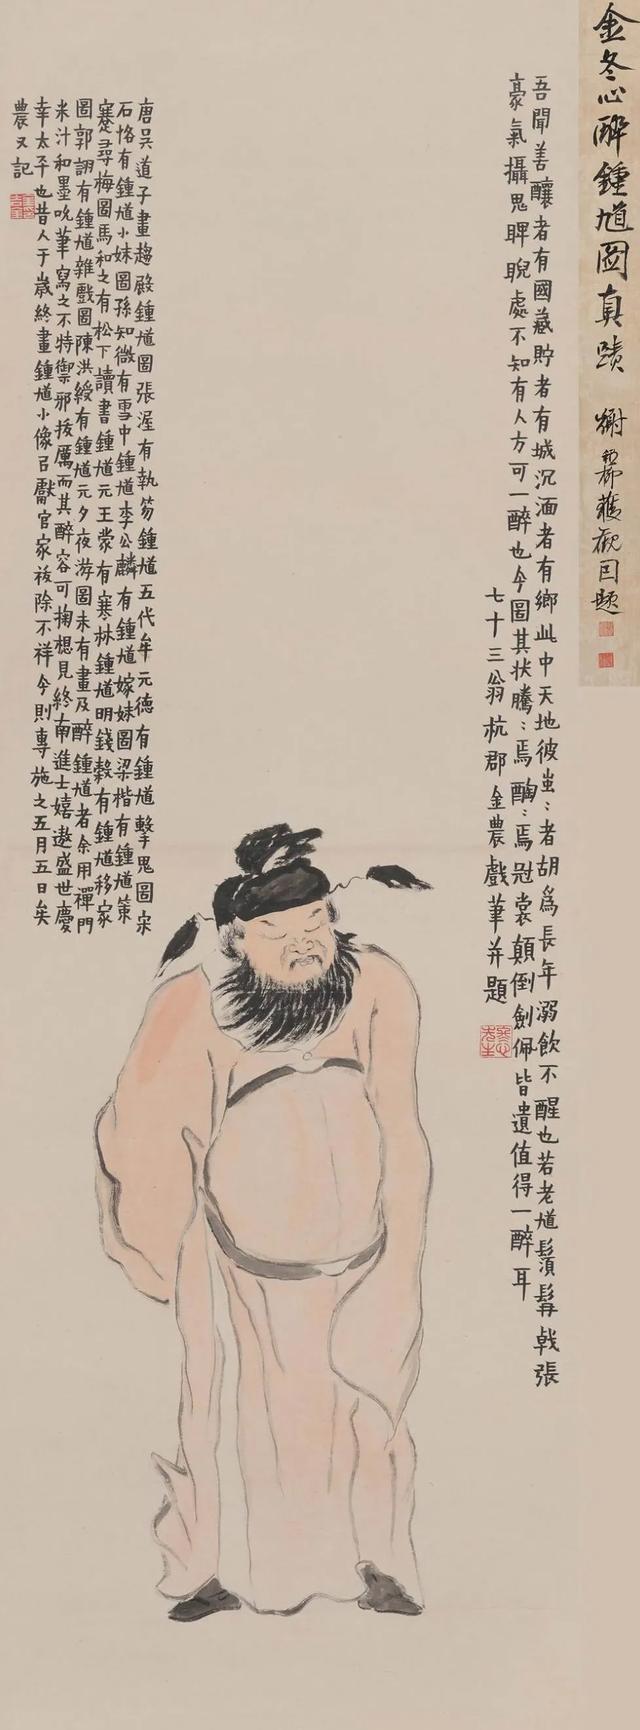 金冬心醉鍾馗圖真蹟
獲觀因題
吾聞善釀者有國藏貯者有城沉湎者有鄉此中天地彼蚩〻者胡為長年溺飲不醒也若老馗鬚髯戟張
豪氣攝鬼睥睨處不知有人方可一醉也今圖其狀騰〻焉酶〻焉冠裳顛倒劍佩皆遺值得一醉耳
七十三翁杭郡金農戲筆并題
唐吳道子畫趨殿鍾馗圖張渥有執笏鍾馗五代牟元德有鍾馗擊鬼圖宋
石恪有鍾馗小妹圖孫知微有雪中鍾馗李公麟有鍾馗嫁妹圖梁楷有鍾馗策
蹇尋梅圖馬和之有松下讀書鍾馗元王蒙有寒林鍾馗明錢穀有鍾馗移家
圖郭詡有鍾馗雜戲圖陳洪綬有鍾馗元夕夜游圖未有畫及醉鍾馗者余用禪門
米汁和墨吮筆寫之不特禦邪拔厲而其醉容可掬想見終南進士嬉遨盛世慶
幸太平也昔人于歲終畫鍾馗小像㠯獻官家祓除不祥今則專施之五月五日矣
農又記